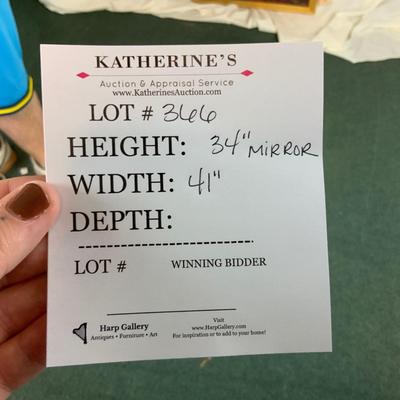 KATHERINE'S
Auction & Appraisal Service
www.KatherinesAuction.com
LOT # 366
HEIGHT: 34" MIRROR
WIDTH: 41"
DEPTH:
LOT # WINNING BIDDER
Harp Gallery
Antiques • Furniture • Art
Visit
www.HarpGallery.com
For inspiration or to add to your home!